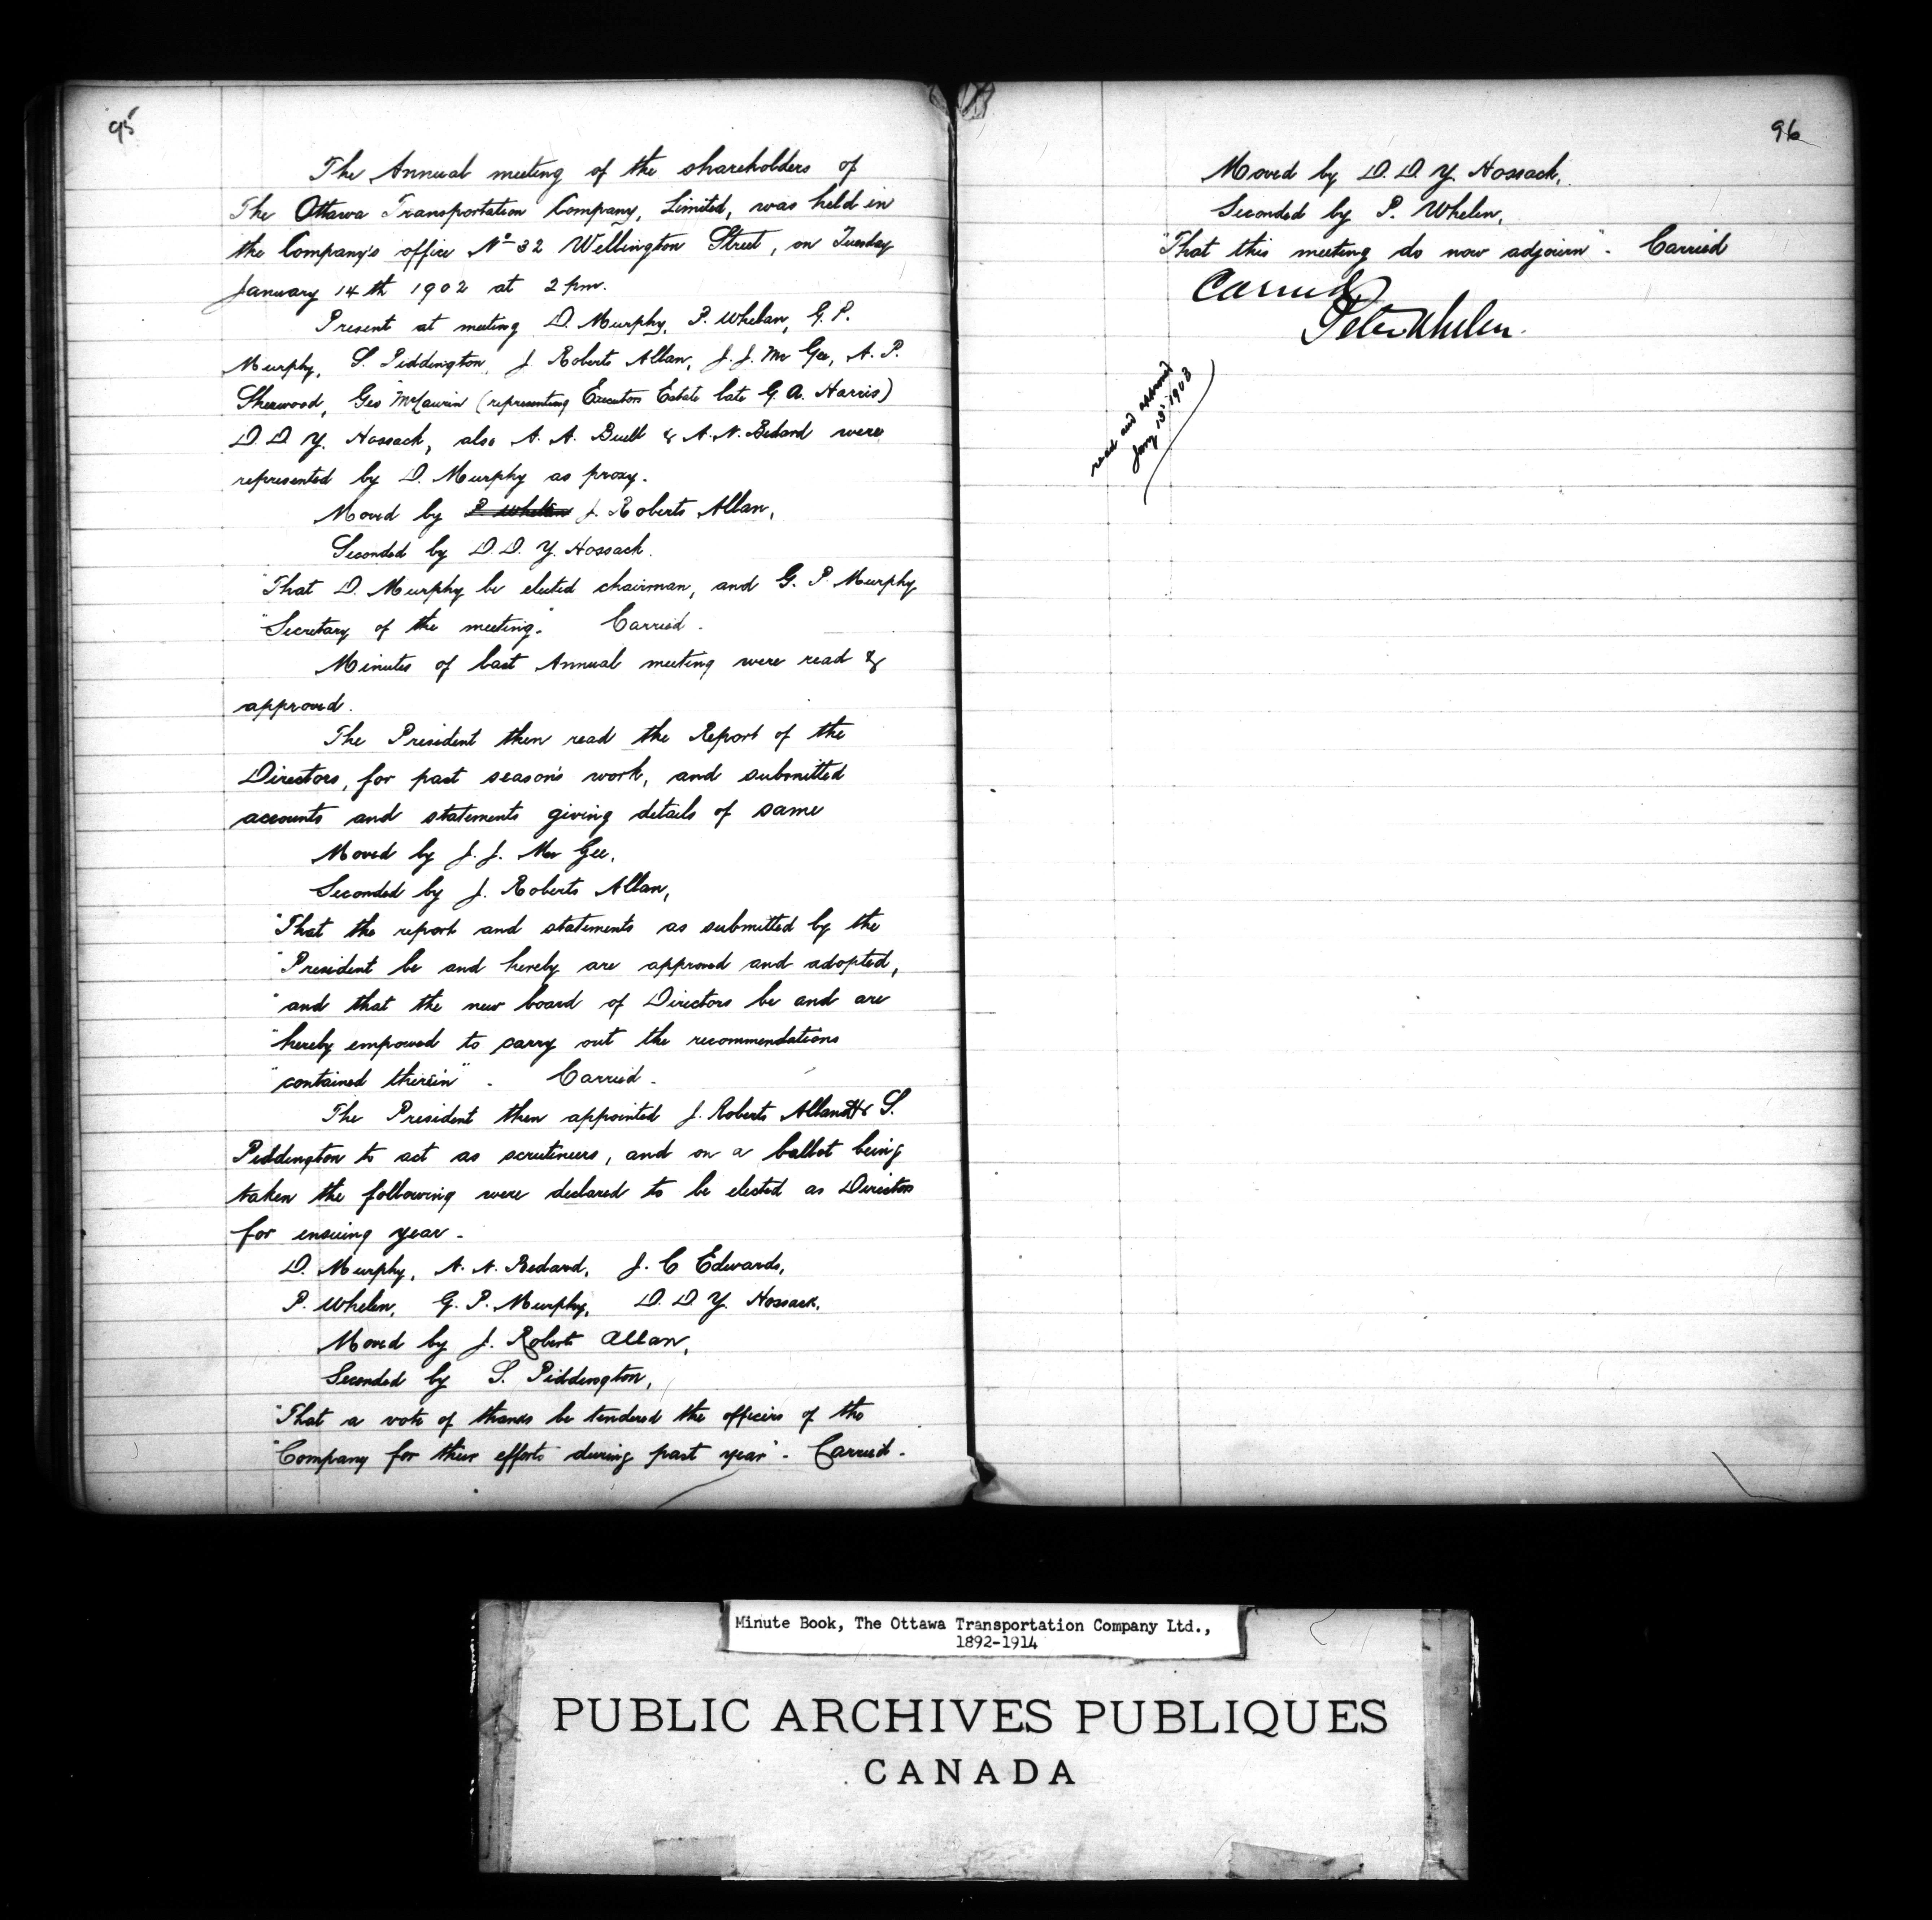 95
The Annual meeting of the shareholders of
The Ottawa Transportation Company, Limited, was held in
the Company's office No 32 Wellington Street, on Tuesday
January 14th 1902 at 2 pm.
Present at meeting D. Murphy, P. Whelan, G. P.
Murphy, S. Piddington, J Roberts Allan, J. J. Mc Gee, A. P.
Sherwood, Geo McLaurin (representing Executors Estate late G. A. Harris)
D. D. Y. Hossack, also A. A. Buell & A. N. Bedard were
represented by D. Murphy as proxy.
Moved by P Whelan J. Roberts Allan,
Seconded by D. D. Y. Hossack.
"That D. Murphy be elected chairman, and G. P. Murphy
"Secretary of the meeting." Carried.
Minutes of last Annual meeting were read &
approved.
The President then read the Report of the
Directors, for past season's work, and submitted
accounts and statements giving details of same
Moved by J. J. Mc Gee,
Seconded by J. Roberts Allan,
"That the report and statements as submitted by the
"President be and hereby are approved and adopted,
"and that the new board of Directors be and are
"hereby empowed to carry out the recommendations
"contained therein". Carried.
The President then appointed J. Roberts Allan & S.
Piddington to act as scrutineers, and on a ballot being
taken the following were declared to be elected as Directors
for ensuing year -
D. Murphy, A. N. Bedard, J. C Edwards,
P. Whelen, G. P. Murphy, D. D. Y. Hossack.
Moved by J. Roberts Allan,
Seconded by S. Piddington,
"That a vote of thanks be tendered the officers of the
"Company for their efforts during past year" - Carried.
96
Moved by D. D. Y. Hossack,
Seconded by P. Whelen,
"That this meeting do now adjourn" - Carried
Carried
Peter Whelen.
read and approved
Jany 13th 1903
Minute Book, The Ottawa Transportation Company Ltd.,
1892-1914
PUBLIC ARCHIVES PUBLIQUES
CANADA